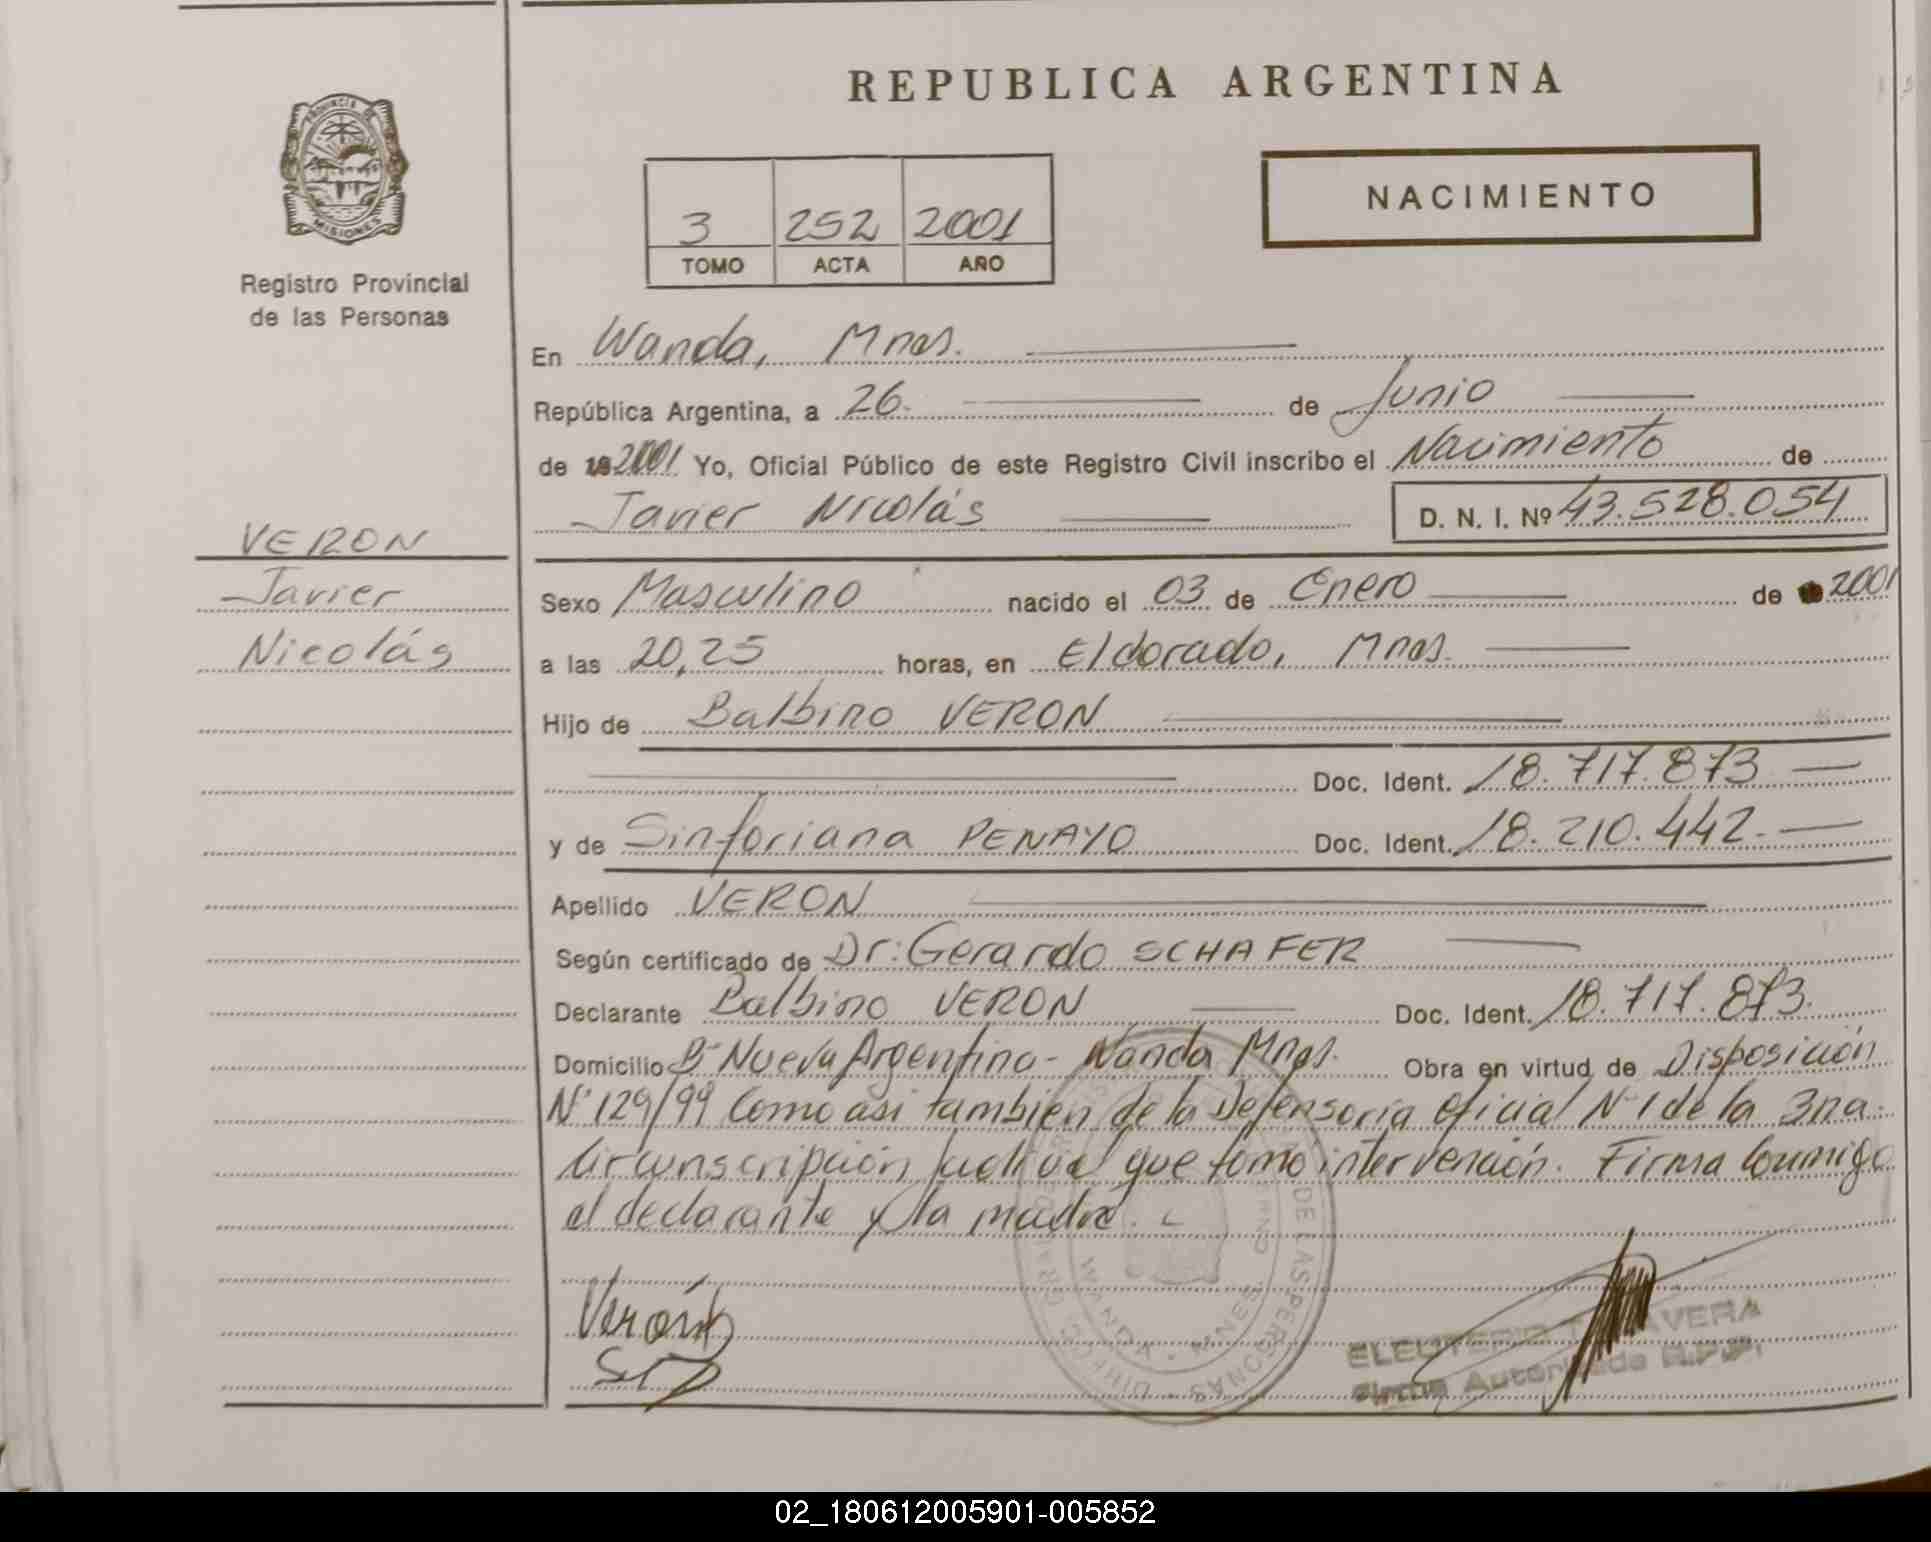 REPUBLICA ARGENTINA
PROVINCIA DE
MISIONES
Registro Provincial
de las Personas
3 252 2001
TOMO ACTA AÑO
NACIMIENTO
En Wanda, Mnes.
República Argentina, a 26 de Junio
de 2001 Yo, Oficial Público de este Registro Civil inscribo el Nacimiento de
Javier Nicolás D. N. I. Nº 43.528.054
VERON
Javier
Nicolás
Sexo Masculino nacido el 03 de Enero de 2001
a las 20,25 horas, en Eldorado, Mnes.
Hijo de Balbino VERON
Doc. Ident. 18.717.873
y de Sinforiana PENAYO Doc. Ident. 18.210.442.
Apellido VERON
Según certificado de Dr: Gerardo SCHAFER
Declarante Balbino VERON Doc. Ident. 18.717.873.
Domicilio Bº Nueva Argentina - Wanda Mnes. Obra en virtud de Disposición
Nº 129/99 Como asi tambien de la Defensoría Oficial Nº 1 de la 3ra.
Circunscripción Judicial que tomo intervención. Firma Conmigo
el declarante y la madre.
WANDA - MNES
DE LAS PERSONAS
ELEUTERIO TALAVERA
Firma Autorizada R.P.P.
02_180612005901-005852